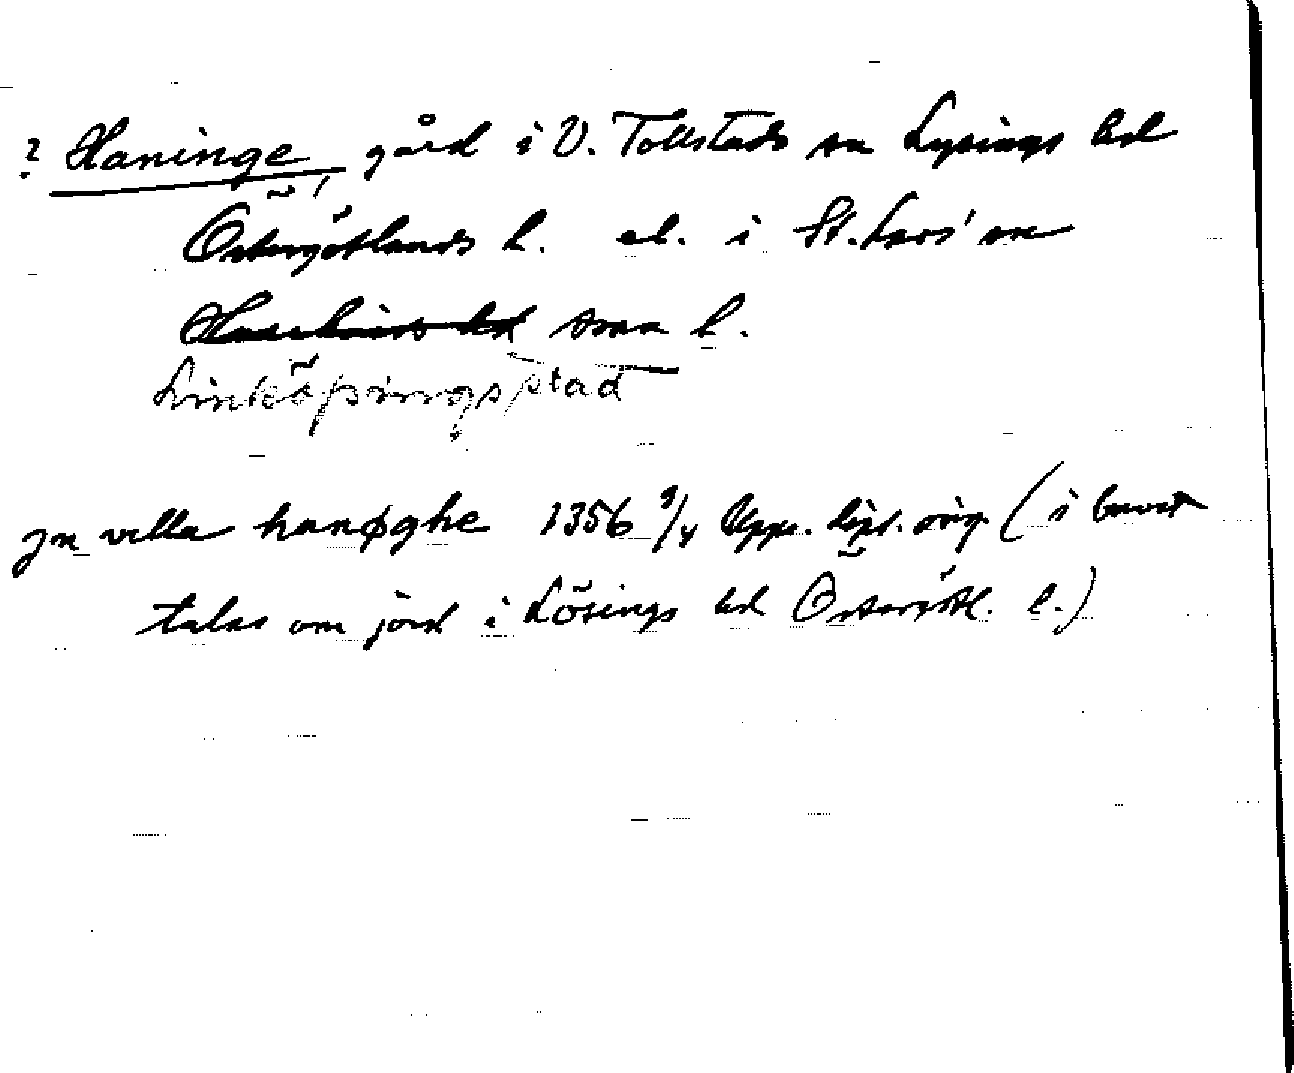 ? Haninge gård i V. Tollstads sn Lysings hd
Östergötlands l. el. i St. Lars' sn
Hanekinds hd sma l.
Linköpings stad
jn villa hanøghe 1356 9/4 Upps. dipl. orig. (i brevet
talas om jord i Lösings hd Östergötl. l.)